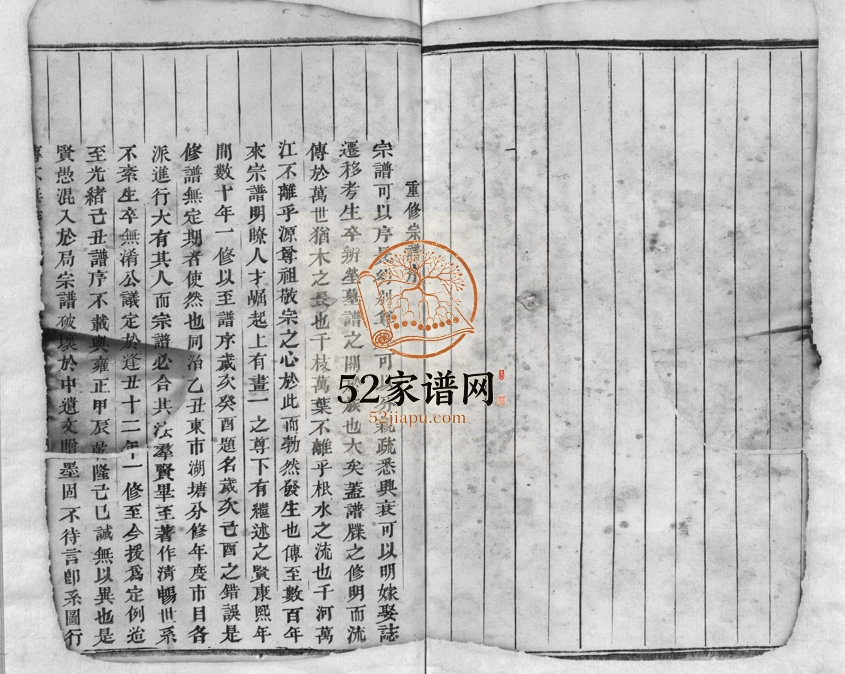 重修宗譜
宗譜可以序可以親疏悉興衰可以明嫁娶誌
遷移考生卒辨塋墓譜之關族也大矣蓋譜牒之修明而流
傳於萬世猶木之長也千枝萬葉不離乎根水之流也千河萬
江不離乎源尊祖敬宗之心於此而勃然發生也傳至數百年
來宗譜明瞭人才崛起上有畫一之尊下有繼述之賢康熙年
間數十年一修以至譜序歲次癸酉題名歲次己酉之錯誤是
修譜無定期者使然也同治乙丑東市湖塘分修年度市目各
派進行大有其人而宗譜必合其法羣賢畢至著作清暢世系
不紊生卒無淆公議定於逢丑十二年一修至今援為定例迨
至光緒己丑譜序不載與雍正甲辰乾隆己巳誠無以異也是
賢愚混入於局宗譜破壞於中遺文贈墨固不待言卽系圖行
52家谱网
52jiapu.com